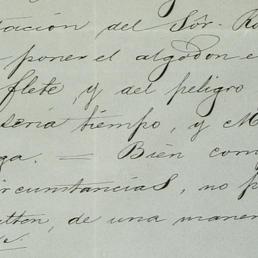 tación del Sôr. R
poner el algodon e
flete, y del peligro
seria tiempo, y M
ga. — Bien com
ircunstancias, no p
utton, de una maner